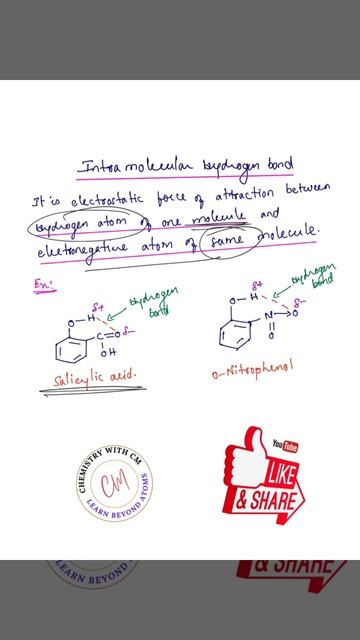 Intra molecular hydrogen bond
It is electrostatic force of attraction between
hydrogen atom of one molecule and
eletronegative atom of same molecule.
Ex:
δ+
O-H
hydrogen
bond
C=O δ-
OH
Salicylic acid.
δ+
O-H
hydrogen
bond
δ-
N→O
O
O-Nitrophenol
CHEMISTRY WITH CM
CM
LEARN BEYOND ATOMS
YouTube
LIKE
& SHARE
LEARN BEYOND ATOMS
& SHARE